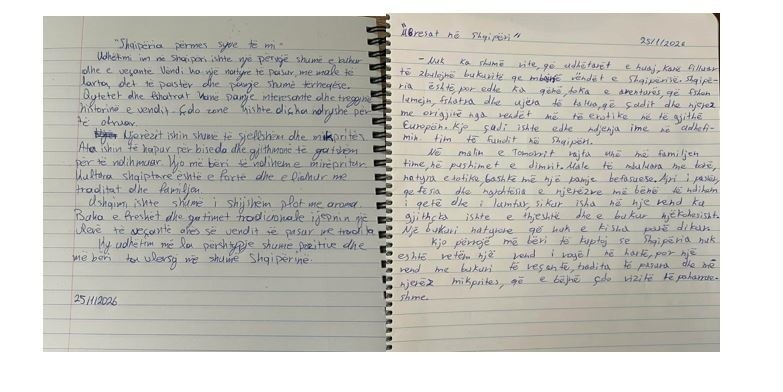 "Shqipëria përmes syve të mi"
Udhëtimi im në Shqipëri ishte një përvojë shumë e bukur
dhe e veçantë. Vendi ka një natyrë të pasur, me male të
larta, det të pastër dhe pamje shumë tërheqëse.
Qytetet dhe fshatrat kanë pamje interesante dhe tregojnë
historinë e vendit. Çdo zonë kishte diçka ndryshe për
të ofruar.
Njerëzit ishin shumë të sjellshëm dhe mikpritës.
Ata ishin të hapur për biseda dhe gjithmonë të gatshëm
për të ndihmuar. Kjo më bëri të ndihem e mirëpritur.
Kultura shqiptare është e fortë dhe e lidhur me
traditat dhe familjen.
Ushqimi ishte shumë i shijshëm plot me aroma.
Buka e freskët dhe gatimet tradicionale i jepnin një
vlerë të veçantë
Ky udhëtim më la përshtypje shumë pozitive dhe
më bëri ta vlersoj më shumë Shqipërinë.
25/11/2026
"Aresat në Shqipëri"
25/11/2026
-Nuk ka shumë vite, që udhëtarët e huaj, kanë filluar
të zbulojnë bukuritë që mbajnë vëndët e Shqipërisë. Shqipë-
ria është, por edhe ka qënë, toka e aventurës, që fshen
lumejn, fshatra dhe ujëra të taluq, që çudit dhe njerëz
me origjitë nga vendët më të erotike në të gjithë
Europën. Kjo çudi ishte edhe ndjenja ime në udhëti-
mik tim të fundit në Shqipëri.
Në malin e Tomorrit rajta unë me familjen
time, në pushimet e dimrit. Male të mbuluara me borë,
natyra e tolika bashkë më një pamje befasuese. Ajri i pastër,
qetësia dhe ngrohtësia e njerëzve më bënë të ndihem
i qetë dhe i lumtur, sikur isha në një vend ku
gjithçka ishte e thjeshtë dhe e bukur njëkohësisht.
Një bukuri natyrore që nuk e kisha parë dikur.
Kjo përvojë më bëri të kuptoj se Shqipëria nuk
është vetëm një vend i vogël në hartë, por një
vend me bukuri të veçantë, tradita të pasura dhe më
njerëz mikpritës, që e bëjnë çdo vizitë të paharrue-
shme.